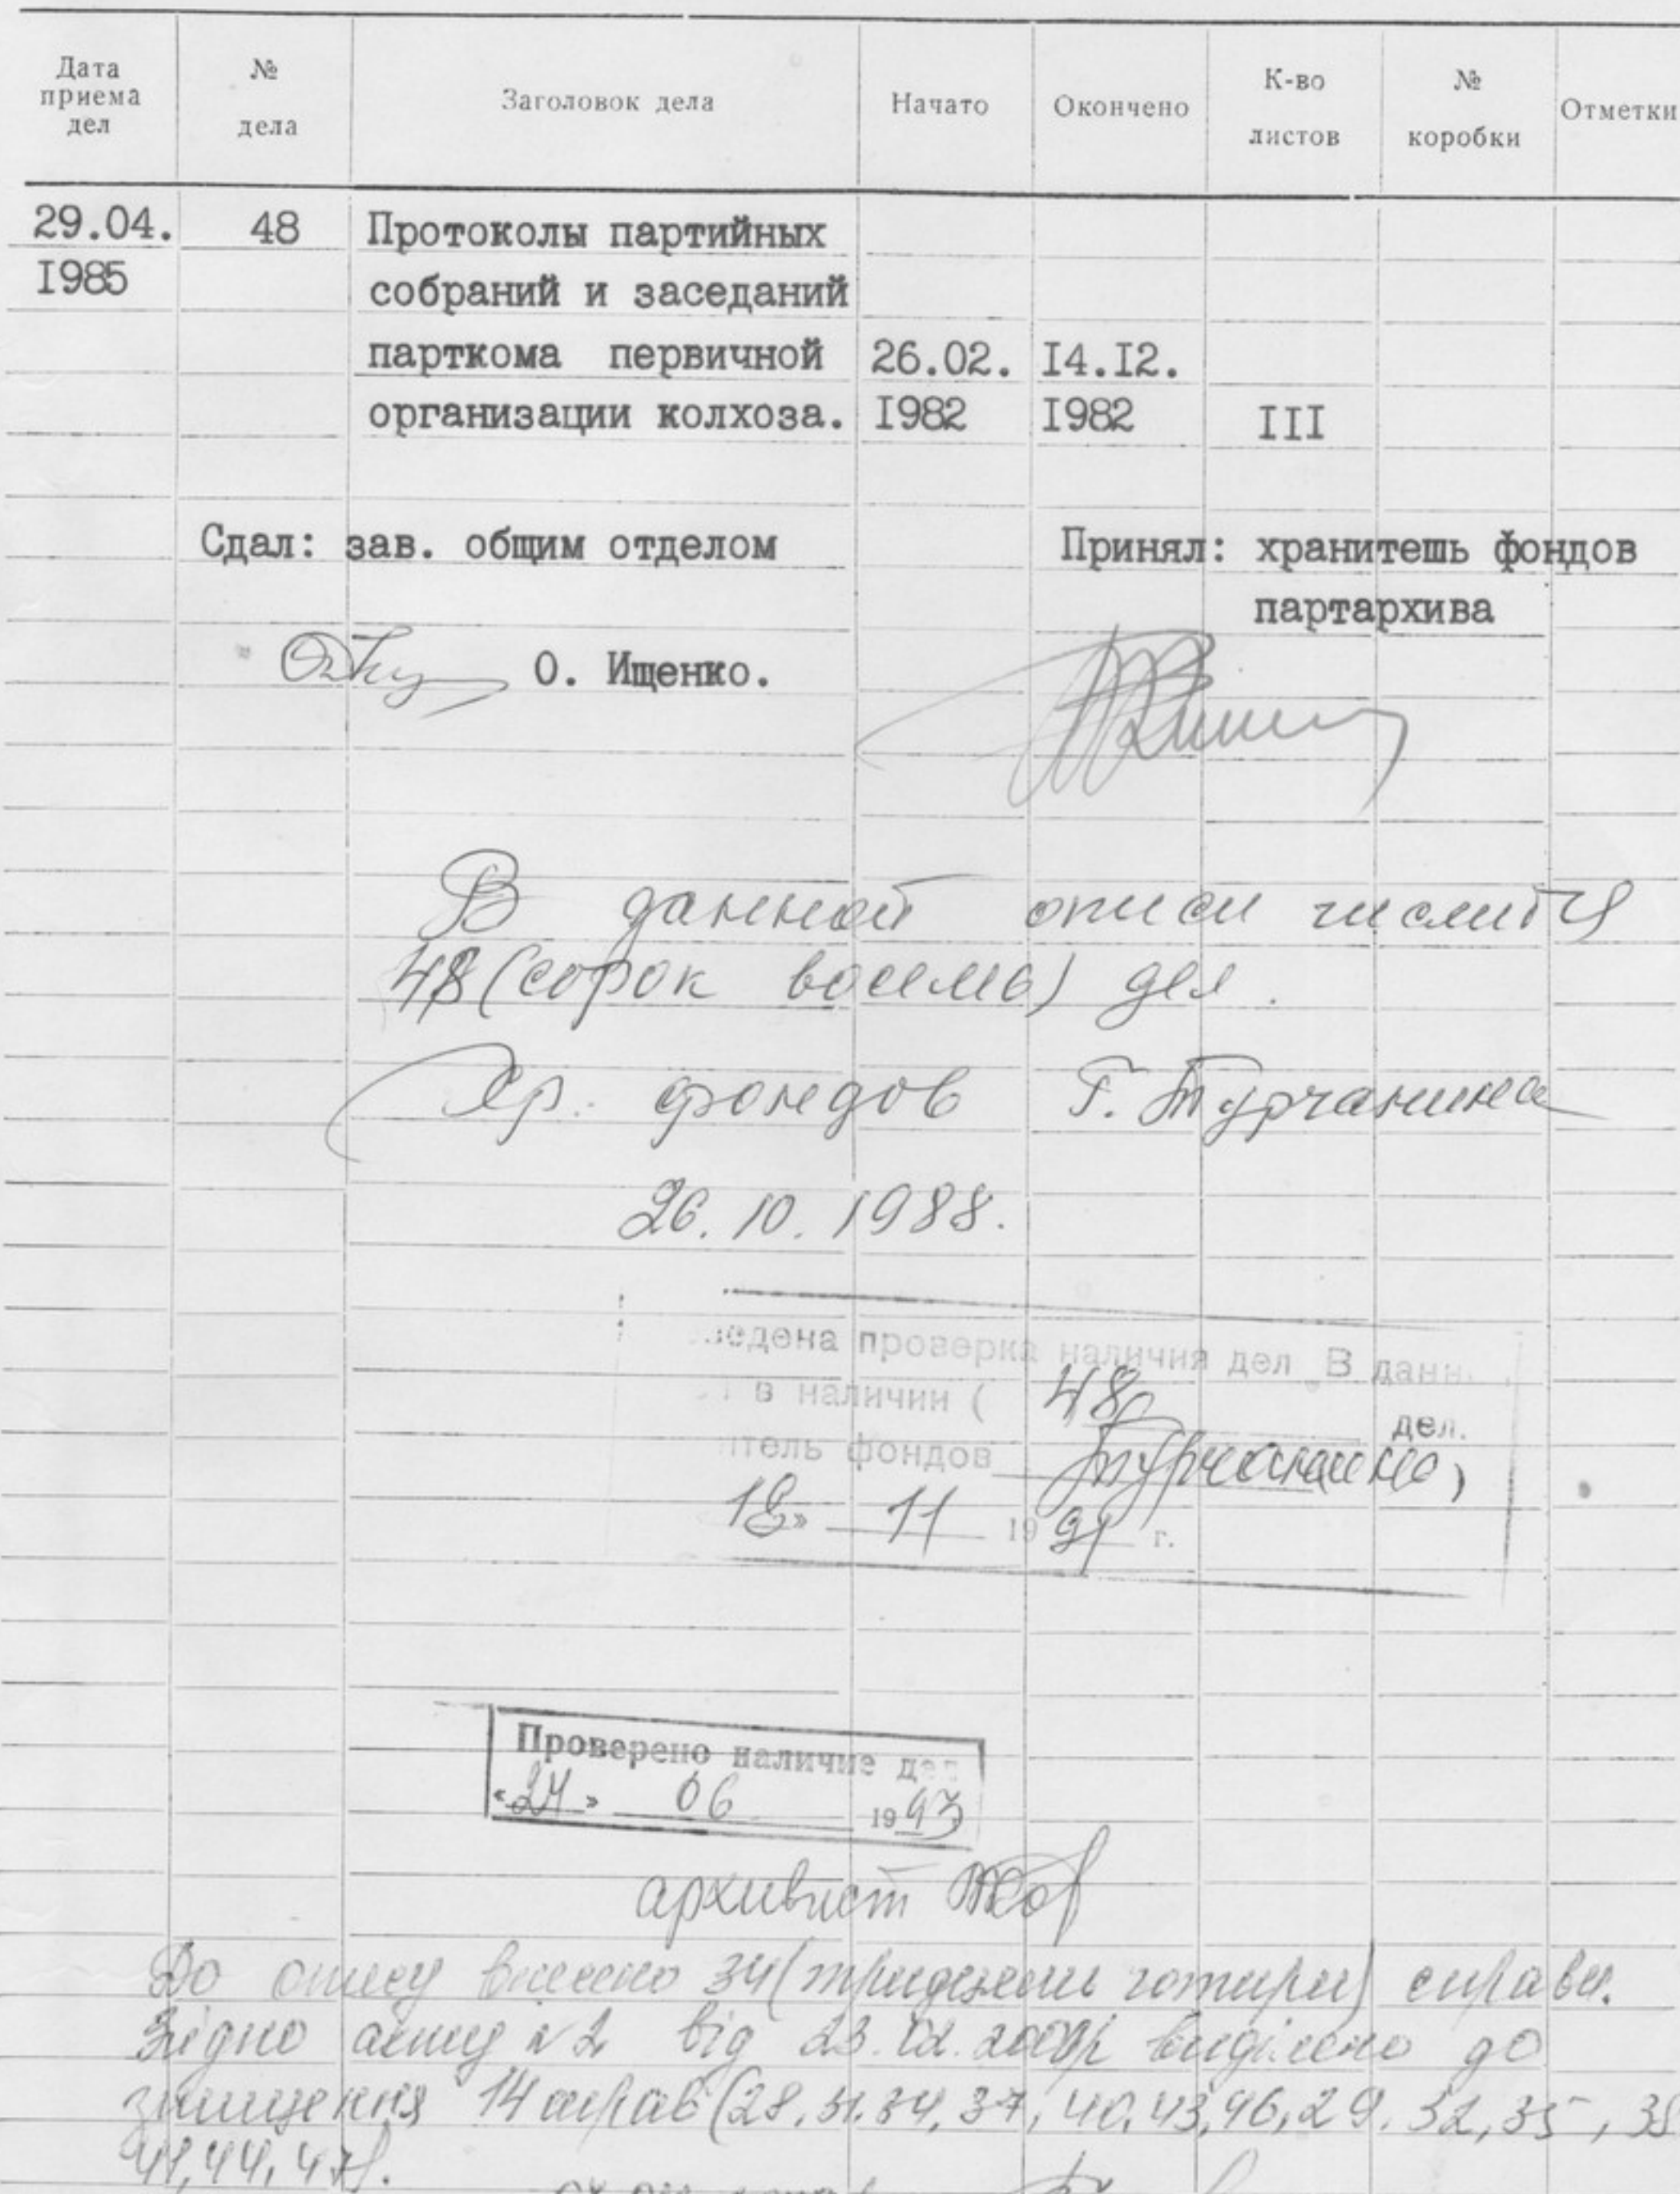 Дата приема дел № дела Заголовок дела Начато Окончено К-во листов № коробки Отметки
29.04. 48 Протоколы партийных
I985 собраний и заседаний
парткома первичной 26.02. I4.I2.
организации колхоза. I982 I982 III
Сдал: зав. общим отделом Принял: хранитешь фондов
партархива
О. Ищенко.
В данной описи числится
48 (сорок восемь) дел.
Хр. фондов Г. Турчанина
26.10.1988.
ведена проверка наличия дел В данн
в наличии ( 48 дел.
итель фондов Турчанина)
18» 11 1991 г.
Проверено наличие дел
«24» 06 1993
архивист
До опису внесено 34 (тридцять чотири) справи.
Згідно акту №2 від 23.02. виділено до
знищення 14 справ (28, 31, 34, 37, 40, 43, 46, 29, 32, 35, 38
41, 44, 47).